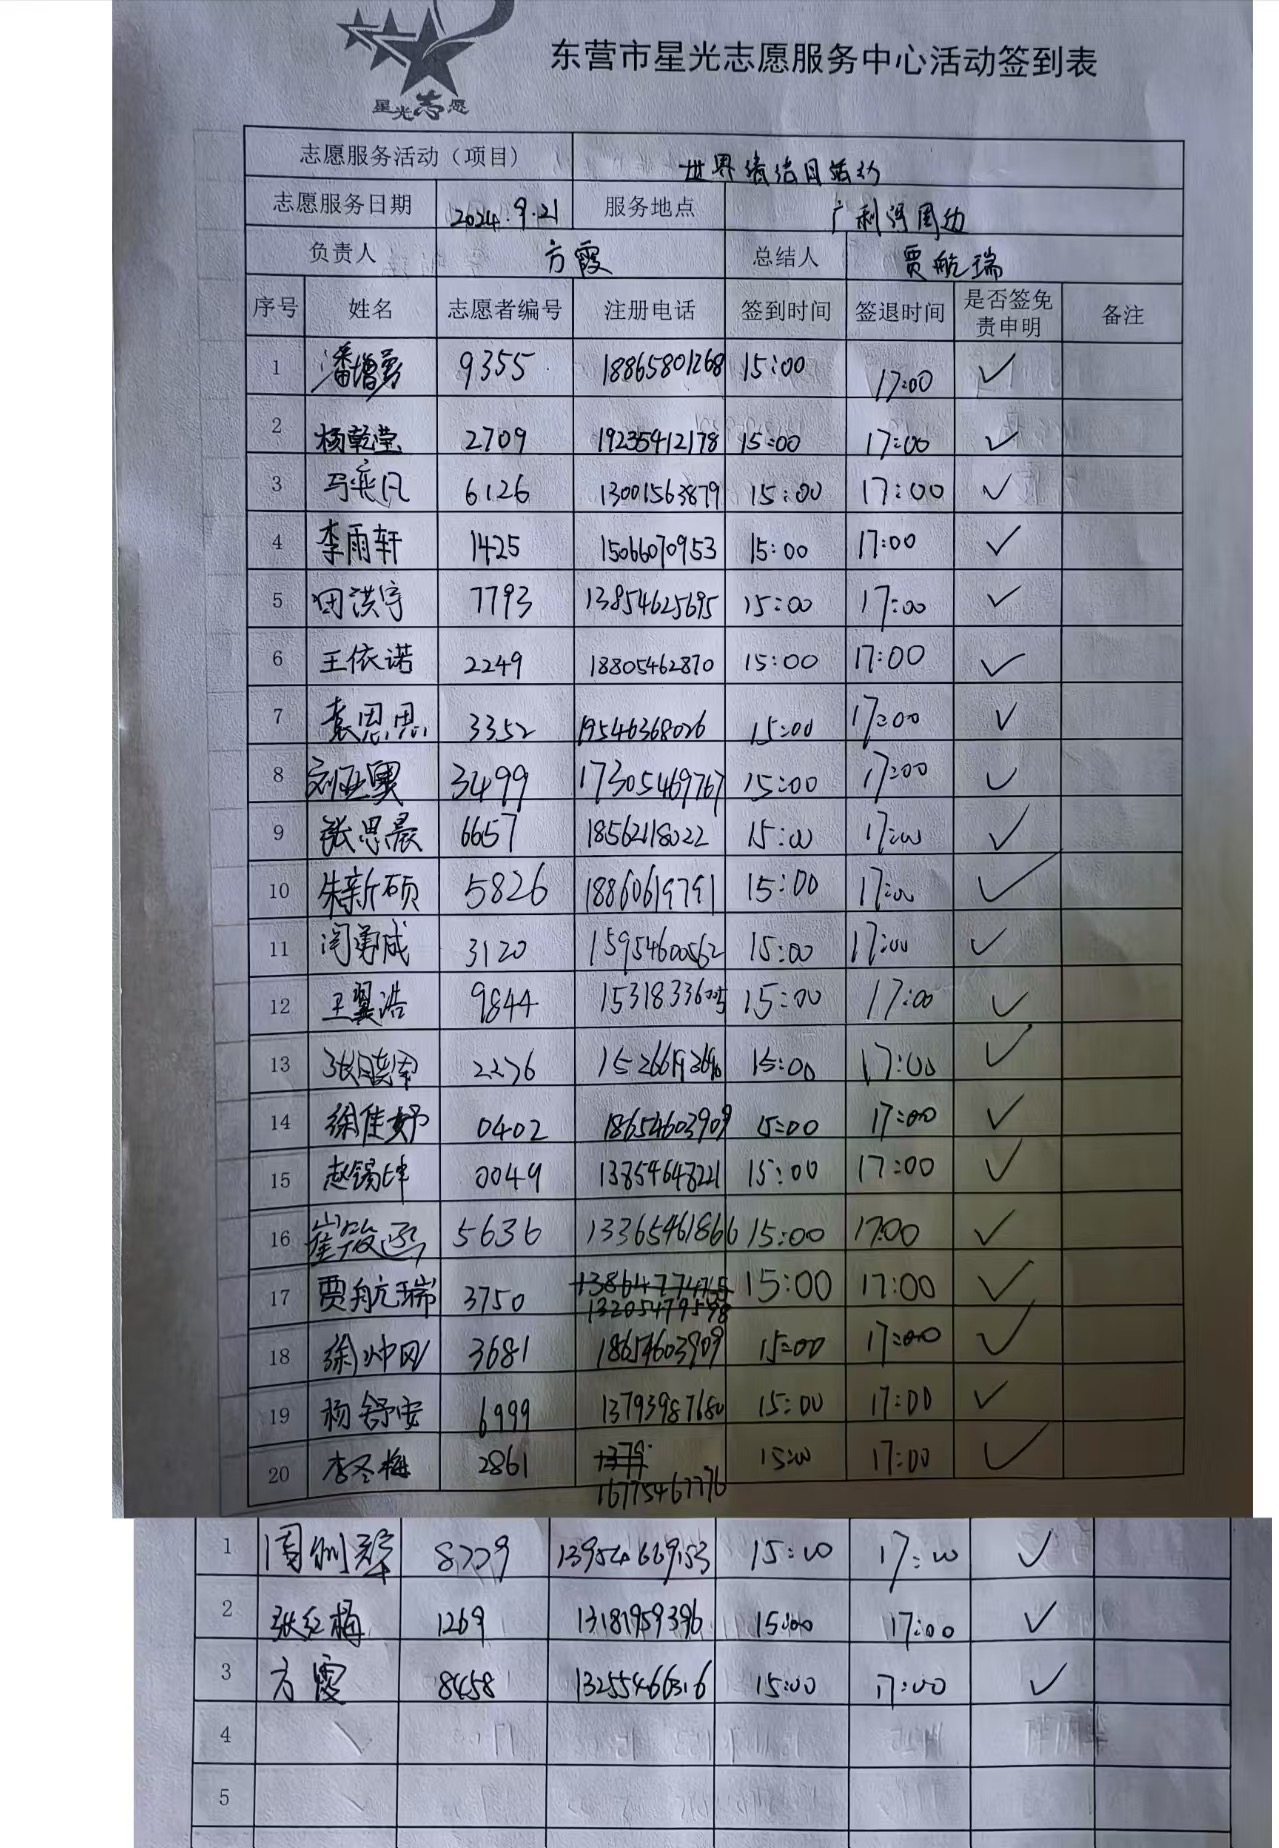 星光志愿
东营市星光志愿服务中心活动签到表
志愿服务活动（项目） 世界清洁日活动
志愿服务日期 2024.9.21 服务地点 广利河周边
负责人 方霞 总结人 贾航瑞
序号 姓名 志愿者编号 注册电话 签到时间 签退时间 是否签免责申明 备注
1 潘增勇 9355 18865801268 15:00 17:00 ✓
2 杨乾莹 2709 19235412178 15:00 17:00 ✓
3 马奕凡 6126 13001563879 15:00 17:00 ✓
4 李雨轩 1425 15066070953 15:00 17:00 ✓
5 田洪宇 7793 13854625695 15:00 17:00 ✓
6 王依诺 2249 18805462870 15:00 17:00 ✓
7 袁思思 3352 19546368026 15:00 17:00 ✓
8 3499 17305469767 15:00 17:00 ✓
9 张思晨 6657 18562118022 15:00 17:00 ✓
10 朱新硕 5826 18860619791 15:00 17:00 ✓
11 闫勇成 3120 15954600562 15:00 17:00 ✓
12 王翼浩 9844 15:00 17:00 ✓
13 2276 15:00 17:00 ✓
14 徐佳妤 0402 18654603909 15:00 17:00 ✓
15 赵锡坤 0049 13854648221 15:00 17:00 ✓
16 5636 13365461866 15:00 17:00 ✓
17 贾航瑞 3750 15:00 17:00 ✓
18 徐帅冈 3681 18654603909 15:00 17:00 ✓
19 杨舒安 6999 13793987680 15:00 17:00 ✓
20 李冬梅 2861 15:00 17:00 ✓
16775467776
1 8229 13954669153 15:00 17:00 ✓
2 张红梅 1269 13181959396 15:00 17:00 ✓
3 方霞 8458 13255466316 15:00 17:00 ✓
4
5